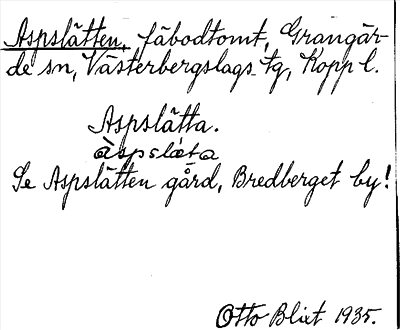 Aspslätten, fäbodtomt, Grangär-
de sn, Västerbergslags tg, Kopp l.
Aspslätta.
àspslæ̀ta
Se Aspslätten gård, Bredberget by!
Otto Blixt 1935.